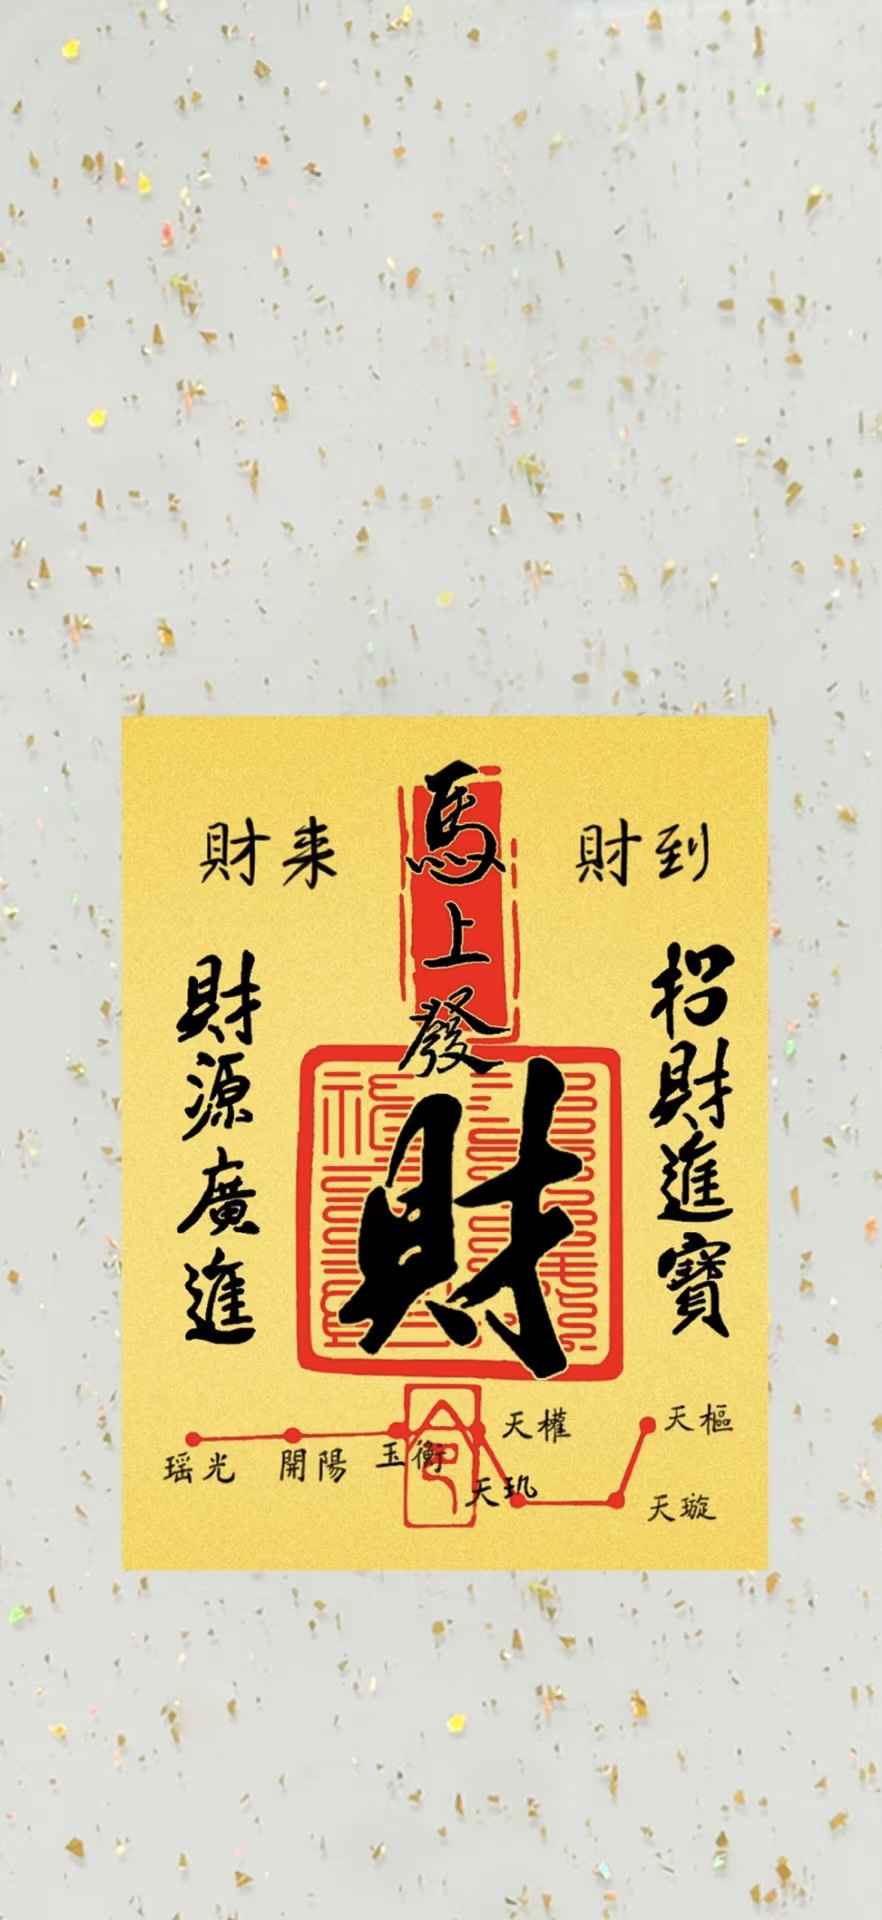 馬上發財
財来
財到
招財進寶
財源廣進
瑶光
開陽
玉衡
天權
天玑
天璇
天樞
命